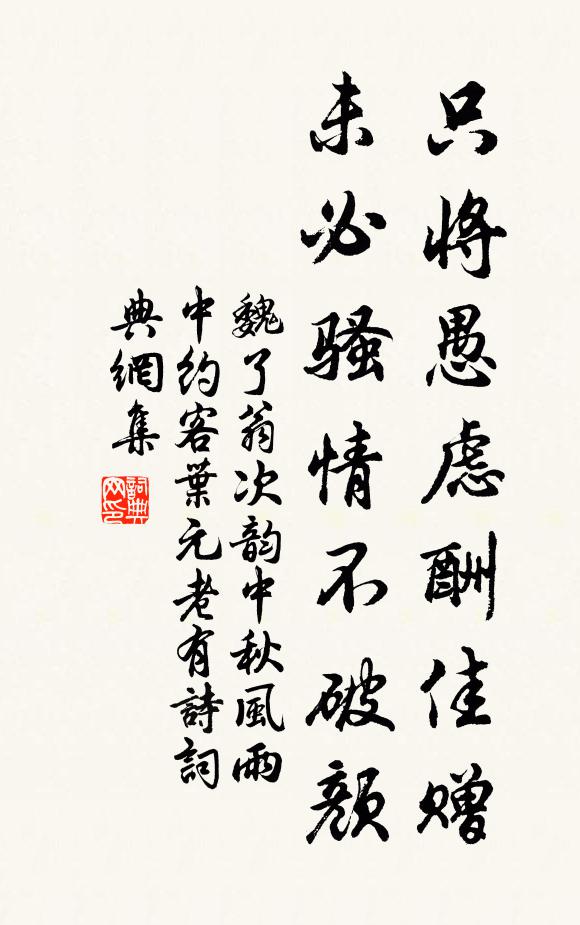 只將愚慮酬佳赠
未必骚情不破顏
魏了翁次韵中秋風雨
中約客葉元老有詩詞
典網集
詞典
网印